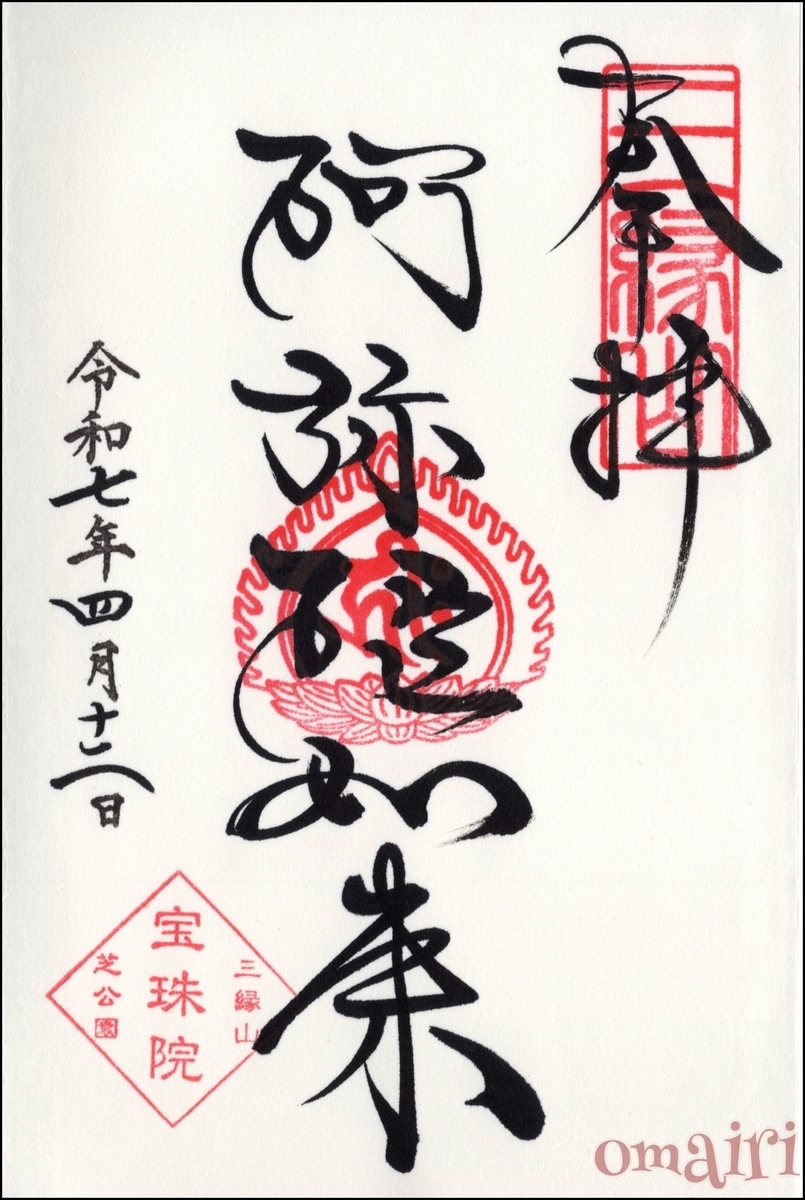 奉拝
三縁山
阿弥陀如来
令和七年四月十六日
三縁山
宝珠院
芝公園
omairi